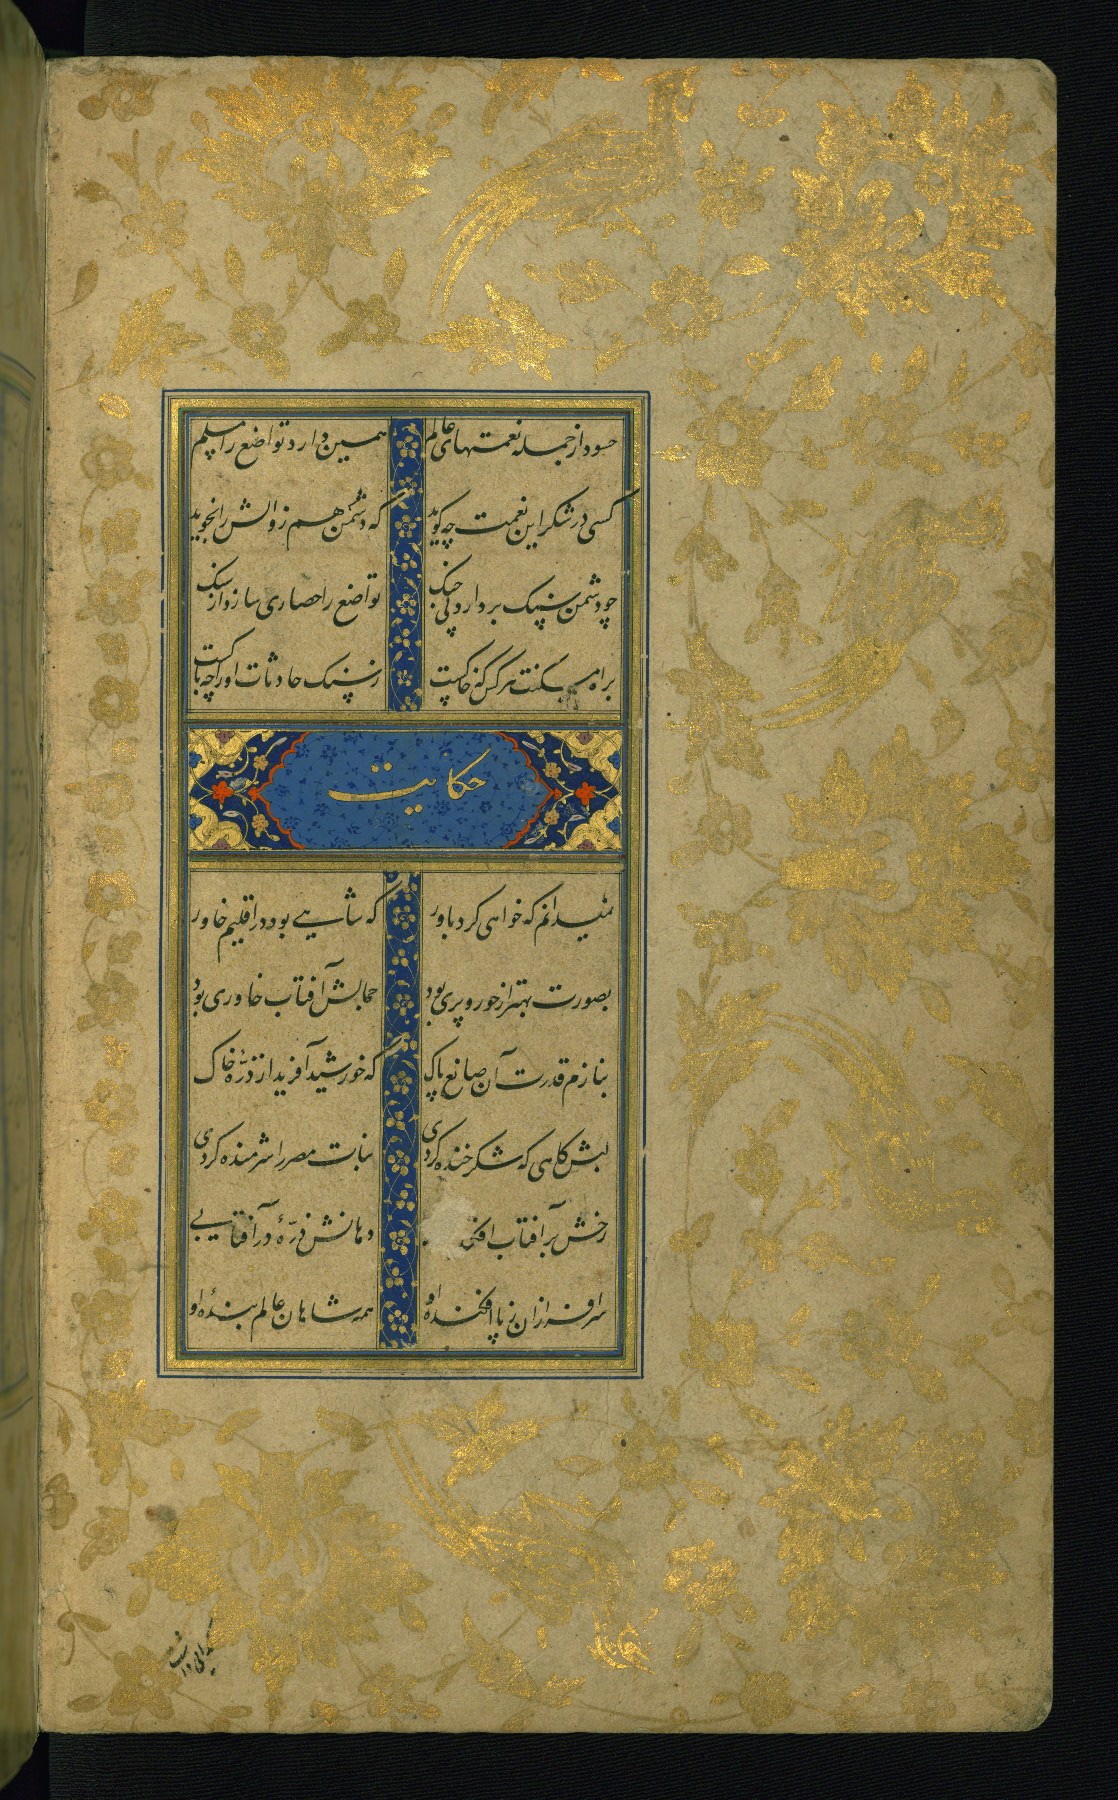 حسود از جمله نعمتهای عالم همین دارد تواضع را مسلم
کسی در شکر این نعمت چه گوید که دشمن هم زوالش را نجوید
چو دشمن سنگ بردارد پی جنگ تواضع را حصاری سازد از سنگ
هر کس که خاکست ز سنگ حادثات او را چه باکست
حکایت
نمیدانم که خواهی کرد باور که شاهی بود در اقلیم خاور
بصورت بهتر از حور و پری بود جمالش آفتاب خاوری بود
بنازم قدرت آن صانع پاک که خورشید آفرید از ذرّهٔ خاک
لبش گاهی که شکر خنده کردی نبات مصر را شرمنده کردی
رخش بر آفتاب دهانش ذرّهٔ در آفتابی
سرافرازان ز پا افکندهٔ او همه شاهان عالم بندهٔ او